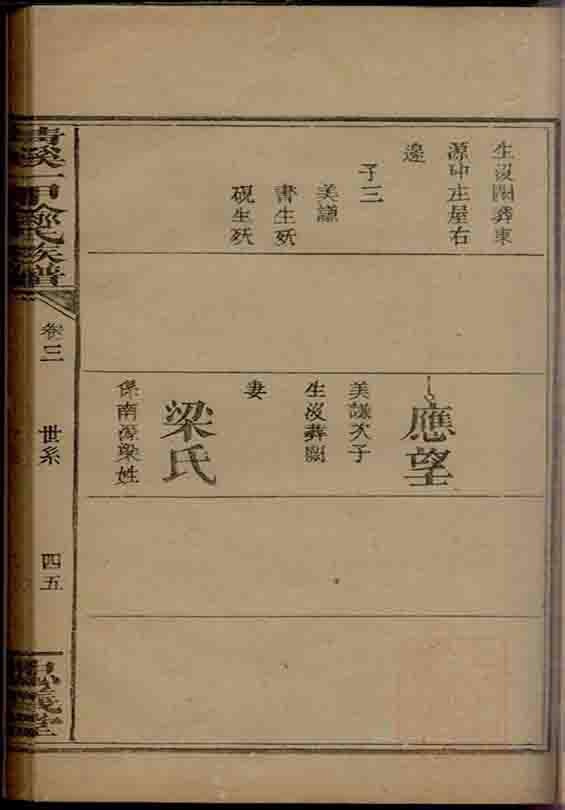 生沒闕葬東
源中庄屋右
邊
子三
美謙
書生殀
硯生殀
應望
美謙次子
生沒葬闕
妻
梁氏
係南源梁姓
氏族譜
卷三
世系
四五